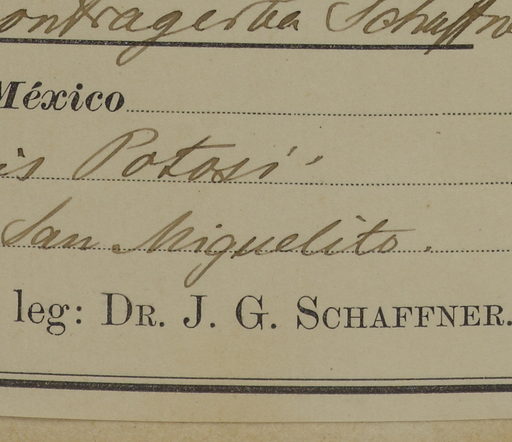 ontragerba Schaffn
México
is Potosí
San Miguelito.
leg: DR. J. G. SCHAFFNER.